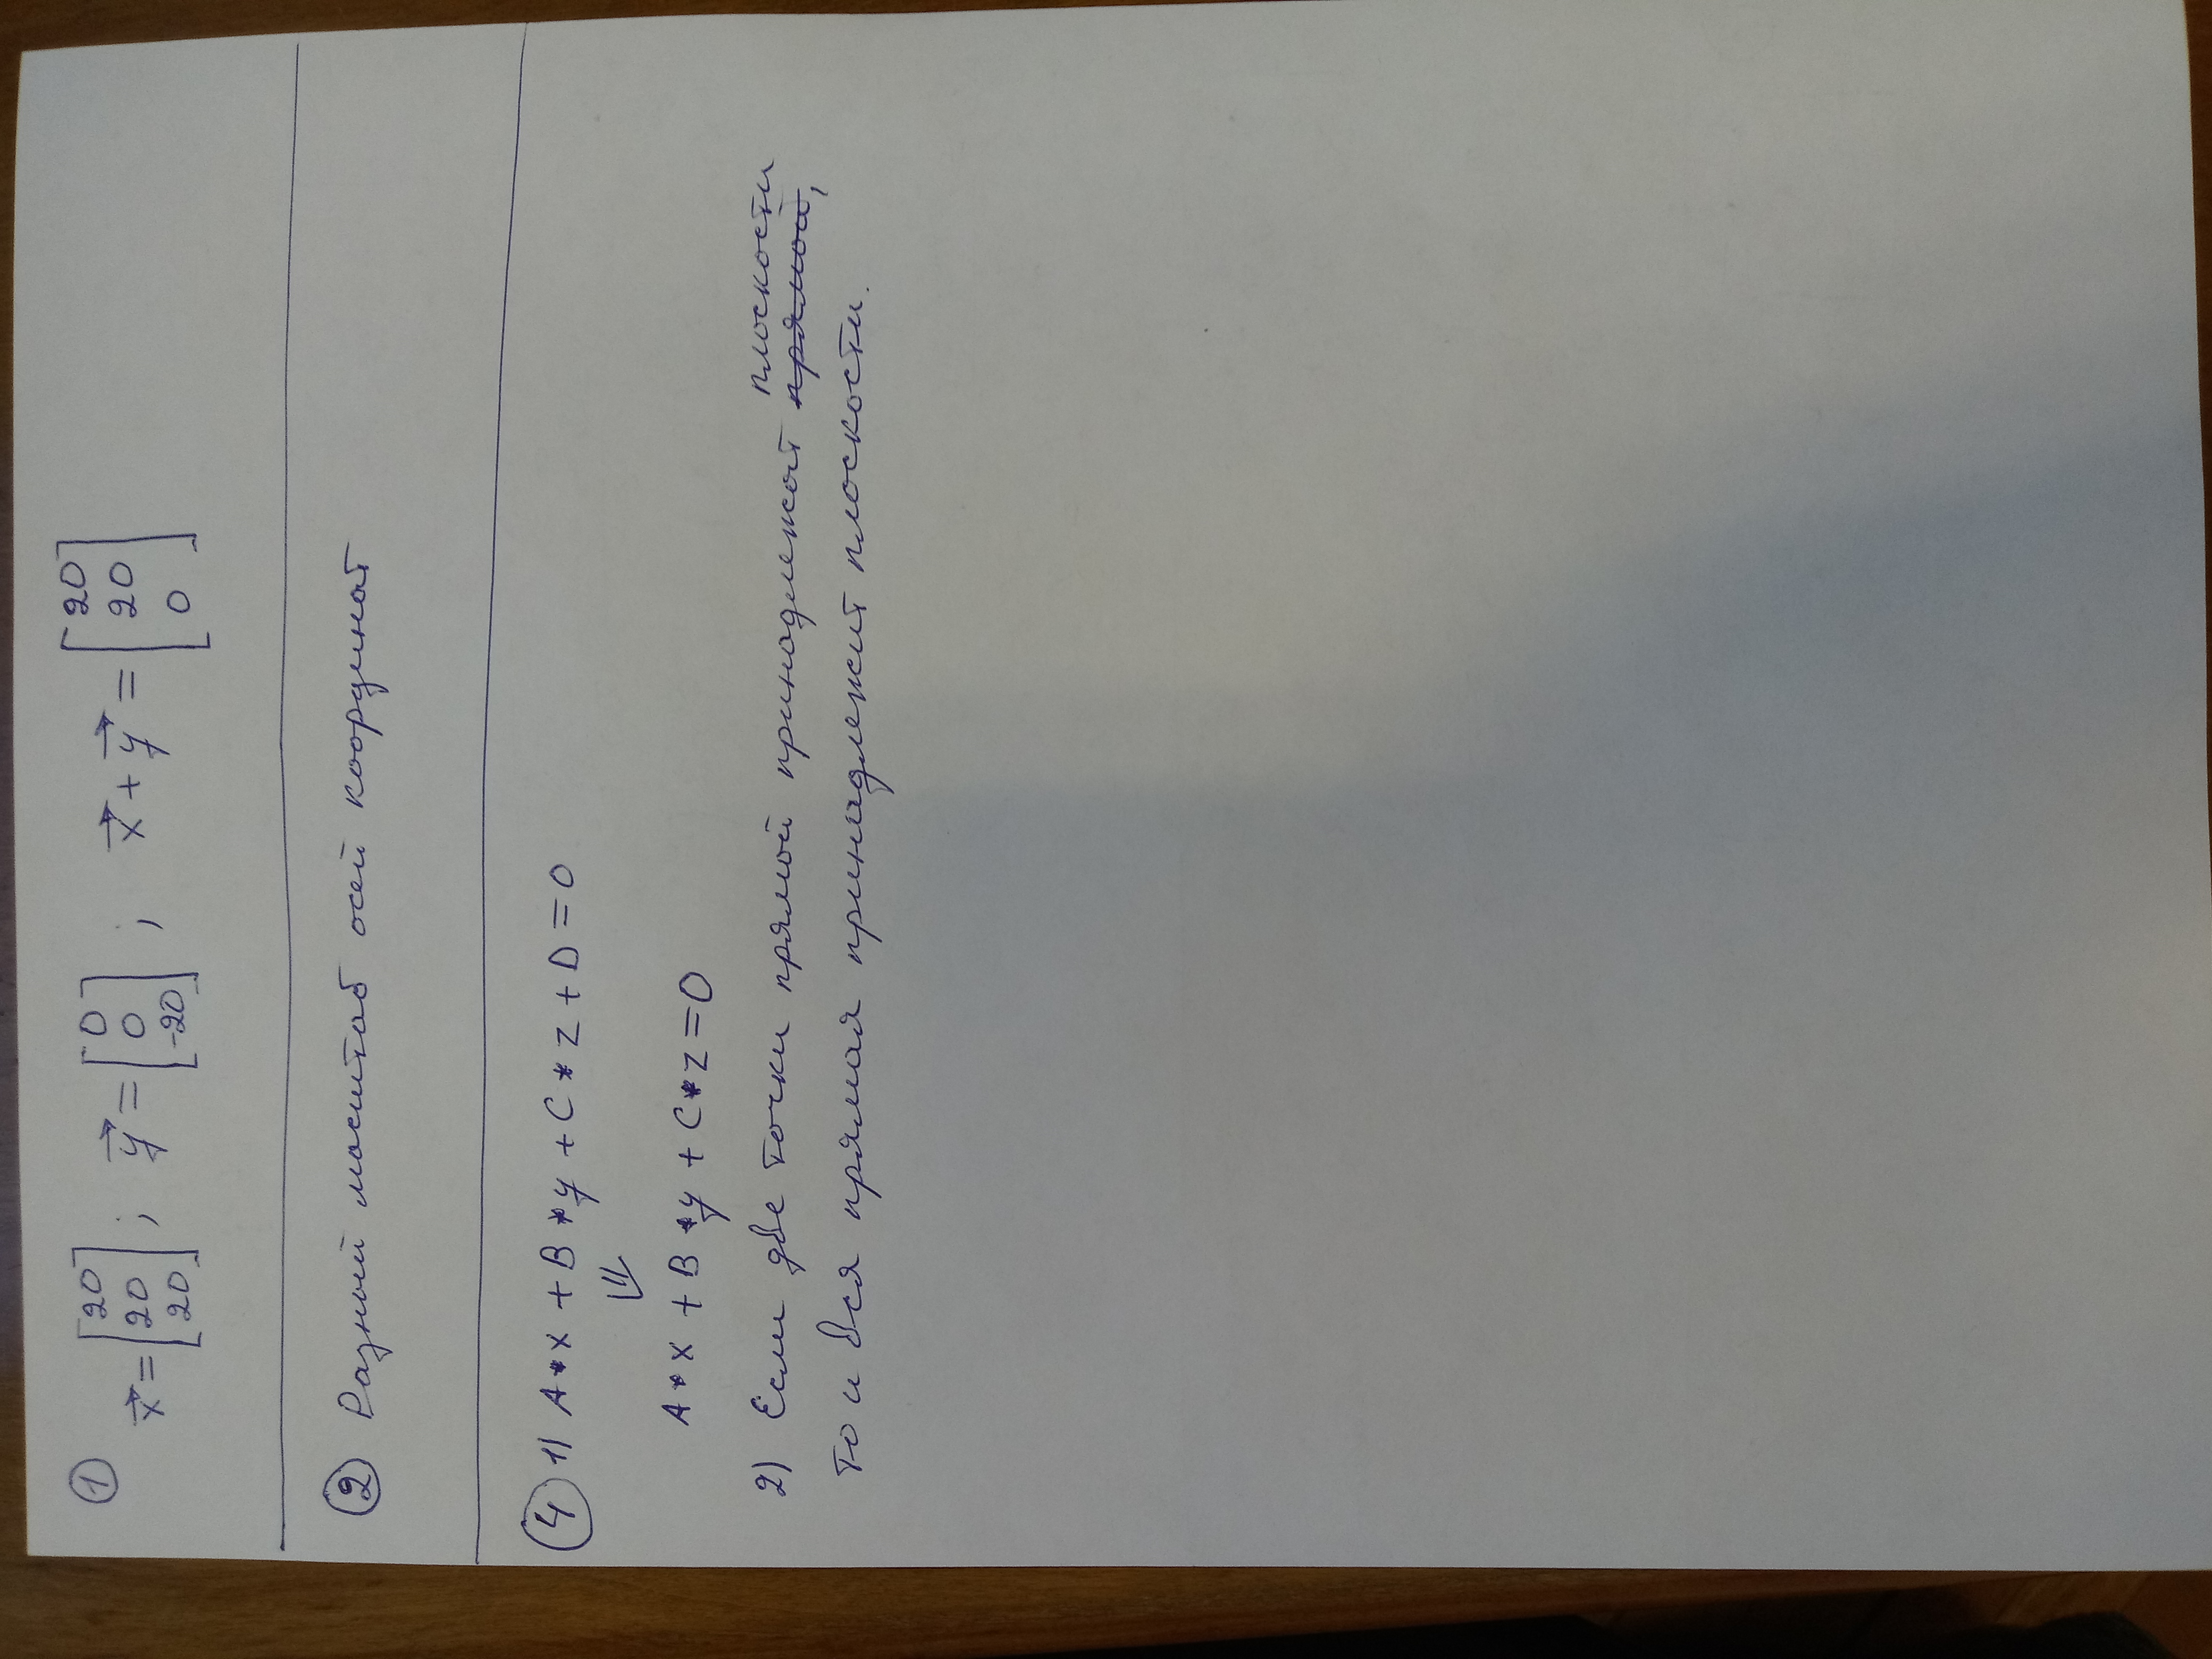 ① x⃗ = [20 20 20] ; y⃗ = [0 0 -20] ; x⃗ + y⃗ = [20 20 0]
② Разный масштаб осей координат
④ 1) A*x + B*y + C*z + D = 0
⇓
A*x + B*y + C*z = 0
2) Если две точки прямой принадлежат плоскости прямой,
то и вся прямая принадлежит плоскости.